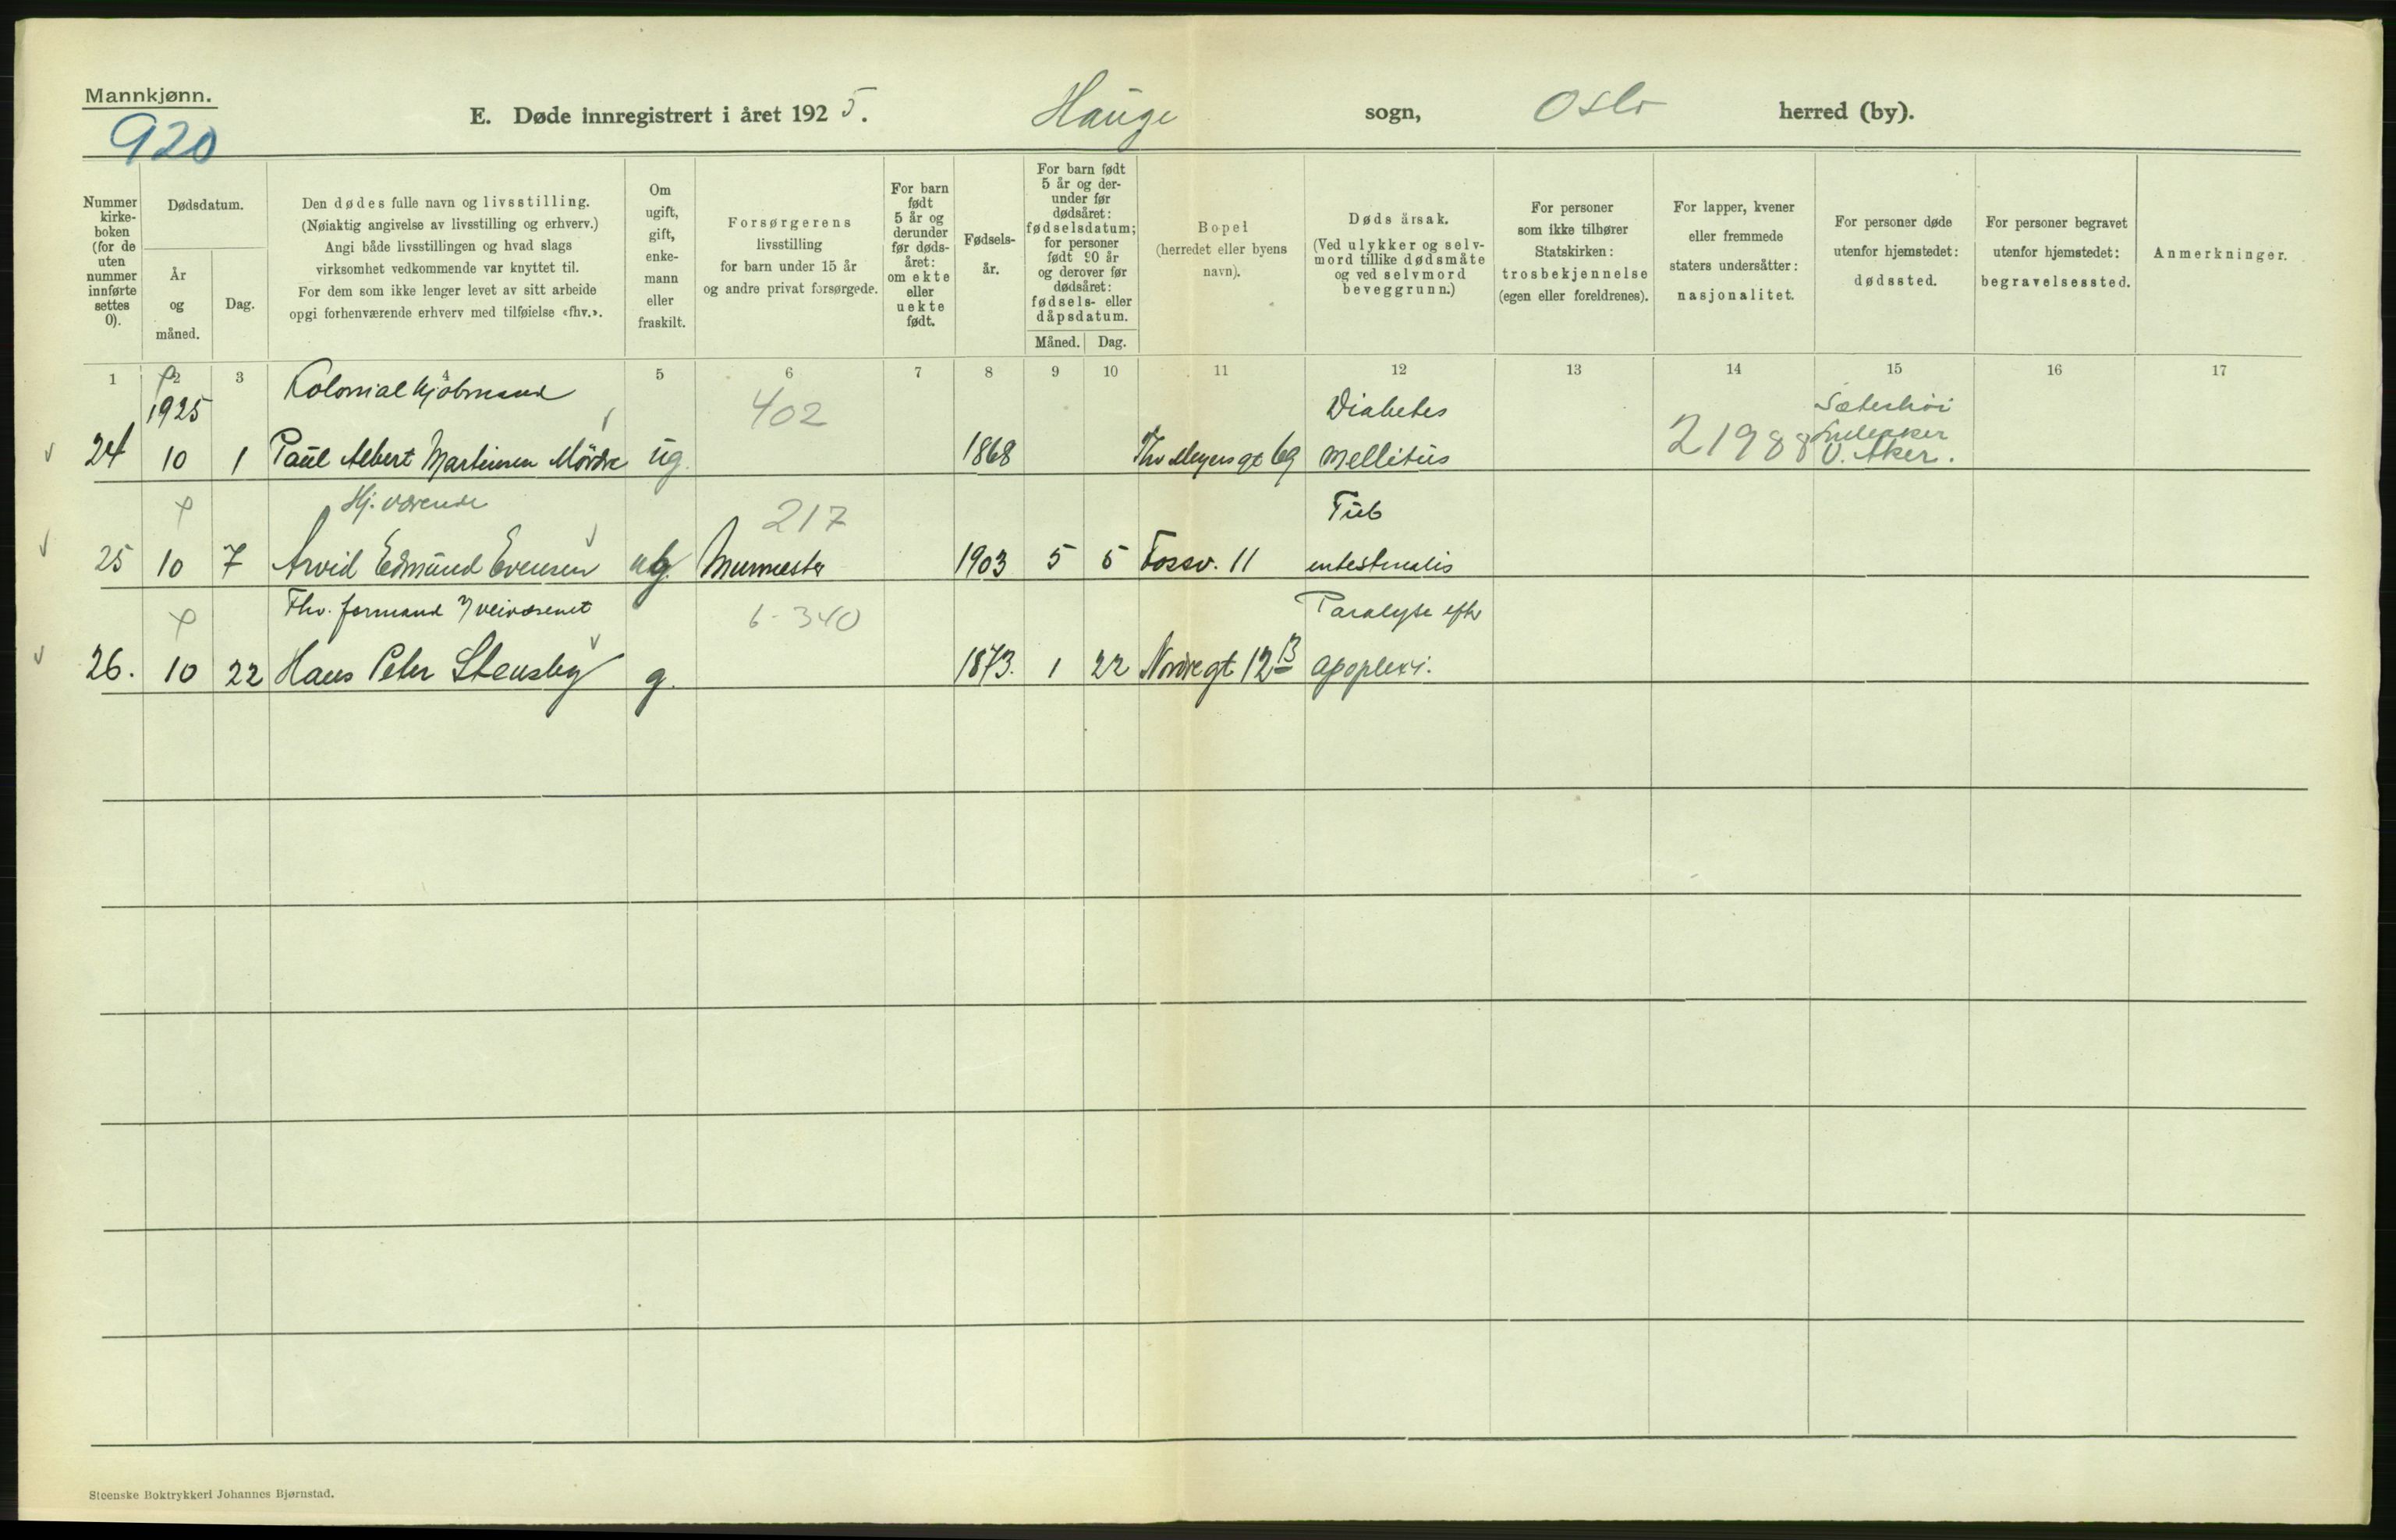 Mannkjønn.
920
E. Døde innregistrert i året 1925. Hauge sogn, Oslo herred (by).
Nummer kirke-boken (for de uten nummer innførte settes 0).
Dødsdatum.
År og måned.
Dag.
Den dødes fulle navn og livsstilling.
(Nøiaktig angivelse av livsstilling og erhverv.)
Angi både livsstillingen og hvad slags
virksomhet vedkommende var knyttet til.
For dem som ikke lenger levet av sitt arbeide
opgi forhenværende erhverv med tilføielse «fhv.».
Om ugift, gift, enke-mann eller fraskilt.
Forsørgerens
livsstilling
for barn under 15 år
og andre privat forsørgede.
For barn født 5 år og derunder før døds-året: om ekte eller uekte født.
Fødsels-år.
For barn født 5 år og der-under før dødsåret: fødselsdatum; for personer født 90 år og derover før dødsåret: fødsels- eller dåpsdatum.
Måned. Dag.
Bopel
(herredet eller byens
navn).
Dødsårsak.
(Ved ulykker og selv-
mord tillike dødsmåte
og ved selvmord
beveggrunn.)
For personer
som ikke tilhører
Statskirken:
trosbekjennelse
(egen eller foreldrenes).
For lapper, kvener
eller fremmede
staters undersåtter:
nasjonalitet.
For personer døde
utenfor hjemstedet:
dødssted.
For personer begravet
utenfor hjemstedet:
begravelsessted.
Anmerkninger.
1 2 3 4 5 6 7 8 9 10 11 12 13 14 15 16 17
1925 Kolonialkjøbmand 402 Diabetes Sæterhöi
24 10 1 Paul Albert Martinsen Mördre ug. 1868 Thv Meyersgt 69 Mellitus 21988 Lilleaker
V. Aker.
Hj. værende 217 Tub
25 10 7 Arvid Edmund Evensen ug. Murmester 1903 5 5 Fossv. 11 intestinalis
Fhv. formand v/veivæsenet 6-340 Paralyse efter
26. 10 22 Hans Peter Stensby g. 1873. 1 22 Nordregt 12B apoplexi.
Steenske Boktrykkeri Johannes Bjørnstad.